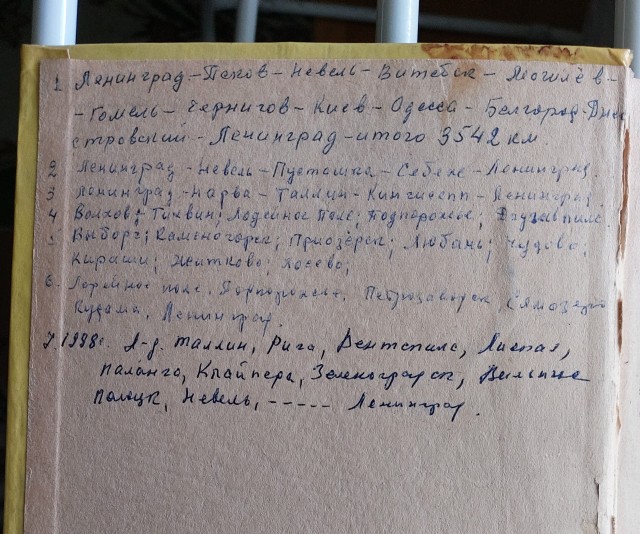 1 Ленинград-Псков-Невель-Витебск-Могилёв-
-Гомель-Чернигов-Киев-Одесса-Белгород-Дне
стровский-Ленинград-итого 3542 км.
2 Ленинград-Невель-Пустошка-Себеж-Ленинград.
3 Ленинград-Нарва-Таллин-Кингисепп-Ленинград
4 Волхов; Тихвин; Лодейное Поле; Подпорожье;
5. Выборг; Каменогорск; Приозёрск; Любань; Чудово;
Кириши; Житково; Лосево;
6. Лодейное поле, Подпорожье, Петрозаводск Сямозеро
Ленинград.
7. 1998г. Л-д. Таллин, Рига, Вентспилс, Лиепая,
Паланга, Клайпеда, Зеленоградск, Вильнюс
Полоцк, Невель, ----- Ленинград.